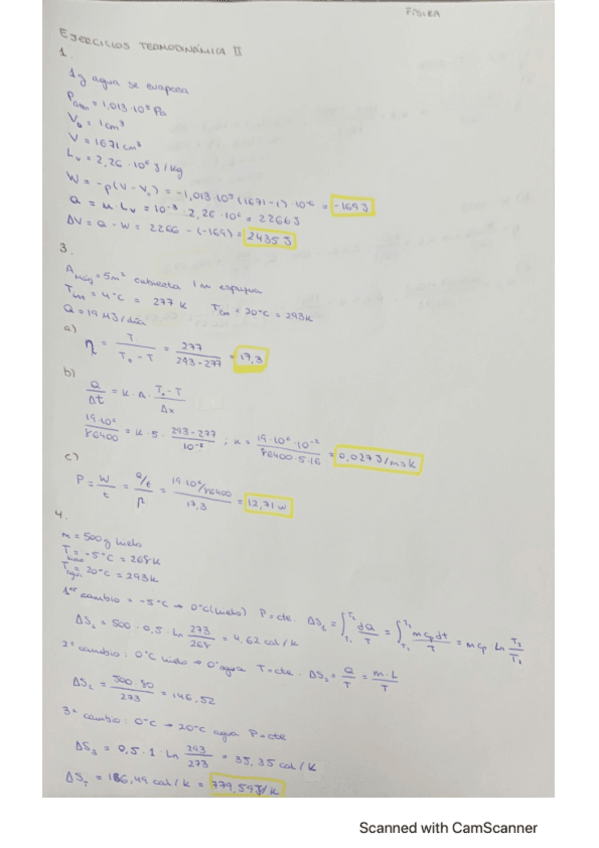 FÍSICA
EJERCICIOS TERMODINÁMICA II
1.
1g agua se evapora
Patm = 1,013·10⁵ Pa
V₀ = 1cm³
V = 1671 cm³
Lv = 2,26·10⁶ J/kg
W = -p(V-V₀) = -1,013·10⁵ (1671-1)·10⁻⁶ = -169J
Q = m·Lv = 10⁻³·2,26·10⁶ = 2266J
ΔU = Q - W = 2266 - (-169) = 2435J
3.
A = 5m² cubierta 1cm espesor
T = 4°C = 277 K T = 20°C = 293K
Q = 19 MJ/día
a)
η = T / (T₀ - T) = 277 / (293-277) = 17,3
b)
Q/Δt = K·A· (T₀-T)/Δx
19·10⁶/86400 = K·5· (293-277)/10⁻² ; K = 19·10⁶·10⁻² / (86400·5·16) = 0,027J/msK
c)
P = W/t = (Q/t)/η = (19·10⁶/86400)/17,3 = 12,71 W
4.
m = 500g hielo
T hielo = -5°C = 268K
T agua = 20°C = 293K
1er cambio = -5°C → 0°C (hielo) P=cte. ΔS₁ = ∫ dQ/T = ∫ m cp dt/T = m cp ln T₂/T₁
ΔS₁ = 500·0,5·Ln 273/268 = 4,62 cal/K
2º cambio: 0°C hielo → 0º agua T=cte. ΔS₂ = Q/T = m·L/T
ΔS₂ = 500·80/273 = 146,52
3er cambio: 0°C → 20°C agua P=cte
ΔS₃ = 0,5·1·Ln 293/273 = 35,35 cal/K
ΔST = 186,49 cal/K = 779,59J/K
Scanned with CamScanner